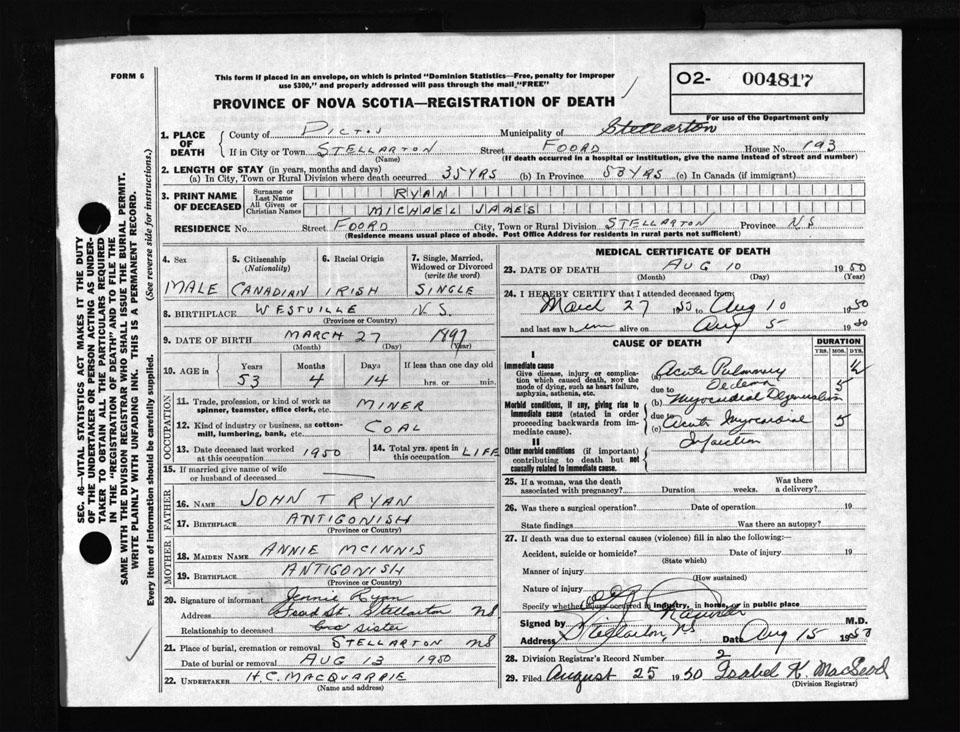 FORM 6
This form if placed in an envelope, on which is printed "Dominion Statistics—Free, penalty for improper
use $300," and properly addressed will pass through the mail "FREE"
PROVINCE OF NOVA SCOTIA—REGISTRATION OF DEATH
O2- 004817
For use of the Department only
1. PLACE OF DEATH County of Pictou Municipality of Stellarton
If in City or Town STELLARTON Street FOORD House No. 193
(Name) (If death occurred in a hospital or institution, give the name instead of street and number)
2. LENGTH OF STAY (in years, months and days)
(a) In City, Town or Rural Division where death occurred 35 YRS (b) In Province 53 YRS (c) In Canada (if immigrant)
3. PRINT NAME OF DECEASED Surname or Last Name RYAN
All Given or Christian Names MICHAEL JAMES
RESIDENCE No. Street FOORD City, Town or Rural Division STELLARTON Province N.S
(Residence means usual place of abode. Post Office Address for residents in rural parts not sufficient)
4. Sex 5. Citizenship (Nationality) 6. Racial Origin 7. Single, Married, Widowed or Divorced (write the word)
MALE CANADIAN IRISH SINGLE
8. BIRTHPLACE WESTVILLE N.S.
(Province or Country)
9. DATE OF BIRTH MARCH 27 1897
(Month) (Day) (Year)
10. AGE IN Years Months Days If less than one day old
53 4 14 hrs. or min.
OCCUPATION
11. Trade, profession, or kind of work as spinner, teamster, office clerk, etc. MINER
12. Kind of industry or business, as cotton-mill, lumbering, bank, etc. COAL
13. Date deceased last worked at this occupation 1950 14. Total yrs. spent in this occupation LIFE
15. If married give name of wife or husband of deceased
FATHER
16. NAME JOHN T RYAN
17. BIRTHPLACE ANTIGONISH
(Province or Country)
MOTHER
18. MAIDEN NAME ANNIE MCINNIS
19. BIRTHPLACE ANTIGONISH
(Province or Country)
20. Signature of informant Jennie Ryan
Address St. Stellarton NS
Relationship to deceased sister
21. Place of burial, cremation or removal STELLARTON NS
Date of burial or removal AUG 13 1950
22. UNDERTAKER H.C. MACQUARRIE
(Name and address)
MEDICAL CERTIFICATE OF DEATH
23. DATE OF DEATH AUG 10 1950
(Month) (Day) (Year)
24. I HEREBY CERTIFY that I attended deceased from
March 27 1950 to Aug 10 1950
and last saw him alive on Aug 5 1950
CAUSE OF DEATH DURATION
YRS. MOS. DYS.
I
Immediate cause
Give disease, injury or complication which caused death, NOT the mode of dying, such as heart failure, asphyxia, asthenia, etc.
(a) Acute Pulmonary Oedema ½
due to
(b) Myocardial Degeneration 5
Morbid conditions, if any, giving rise to immediate cause (stated in order proceeding backwards from immediate cause).
due to
(c) Acute Myocardial Infarction 5
II
Other morbid conditions (if important) contributing to death but not causally related to immediate cause.
25. If a woman, was the death associated with pregnancy? Duration weeks. Was there a delivery?
26. Was there a surgical operation? Date of operation 19
State findings Was there an autopsy?
27. If death was due to external causes (violence) fill in also the following:
Accident, suicide or homicide? Date of injury 19
(State which)
Manner of injury
(How sustained)
Nature of injury
Specify whether injury occurred in industry, in home, or in public place
Signed by M.D.
Address Stellarton NS Date Aug 15 1950
28. Division Registrar's Record Number 2
29. Filed August 25 1950 Isabel K. MacLeod
(Division Registrar)
SEC. 46—VITAL STATISTICS ACT MAKES IT THE DUTY
OF THE UNDERTAKER OR PERSON ACTING AS UNDER-
TAKER TO OBTAIN ALL THE PARTICULARS REQUIRED
IN THE "REGISTRATION OF DEATH" AND TO FILE THE
SAME WITH THE DIVISION REGISTRAR WHO SHALL ISSUE THE BURIAL PERMIT.
WRITE PLAINLY WITH UNFADING INK. THIS IS A PERMANENT RECORD.
Every item of information should be carefully supplied. (See reverse side for instructions.)